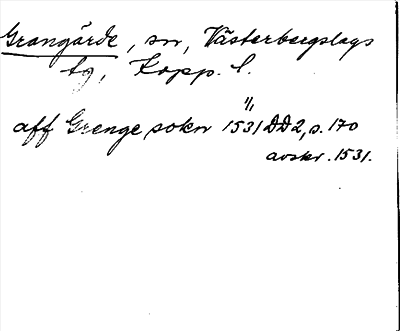 Grangärde, sn, Västerbergslags
tg, Kopp. l.
1/1
aff Grenge sokn 1531 DD2, s. 170
avskr. 1531.